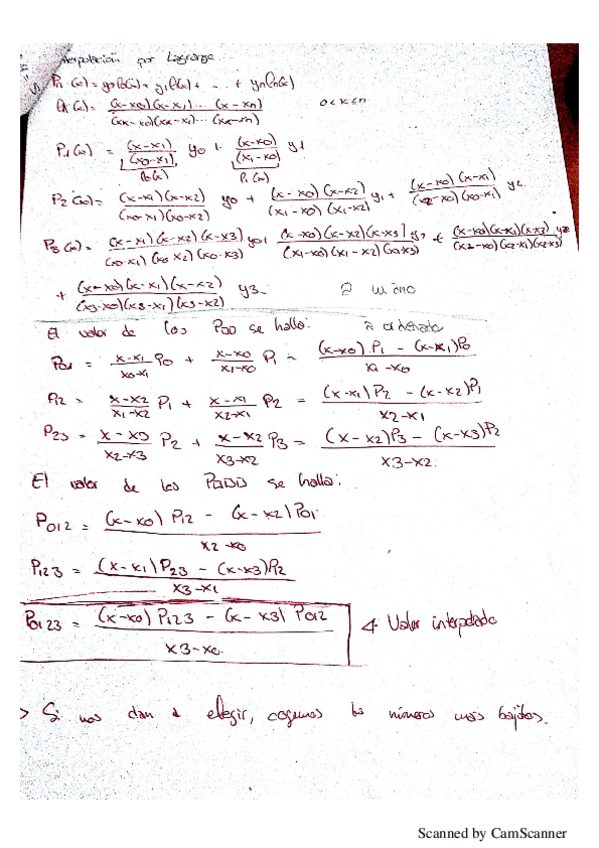 Interpolación por Lagrange
Pn(x) = y0 l0(x) + y1 l1(x) + ... + yn ln(x)
lk(x) = (x-x0)(x-x1)...(x-xn) / (xk-x0)(xk-x1)...(xk-xn) 0<k≤n
P1(x) = (x-x1)/(x0-x1) y0 + (x-x0)/(x1-x0) y1
l0(x) l1(x)
P2(x) = (x-x1)(x-x2)/(x0-x1)(x0-x2) y0 + (x-x0)(x-x2)/(x1-x0)(x1-x2) y1 + (x-x0)(x-x1)/(x2-x0)(x2-x1) y2
P3(x) = (x-x1)(x-x2)(x-x3)/(x0-x1)(x0-x2)(x0-x3) y0 + (x-x0)(x-x2)(x-x3)/(x1-x0)(x1-x2)(x1-x3) y1 + (x-x0)(x-x1)(x-x3)/(x2-x0)(x2-x1)(x2-x3) y2
+ (x-x0)(x-x1)(x-x2)/(x3-x0)(x3-x1)(x3-x2) y3.
El valor de los se halla:
P01 = x-x1/x0-x1 P0 + x-x0/x1-x0 P1 = (x-x0).P1 - (x-x1)P0 / x1-x0
P12 = x-x2/x1-x2 P1 + x-x1/x2-x1 P2 = (x-x1)P2 - (x-x2)P1 / x2-x1
P23 = x-x3/x2-x3 P2 + x-x2/x3-x2 P3 = (x-x2)P3 - (x-x3)P2 / x3-x2.
El valor de los se halla:
P012 = (x-x0) P12 - (x-x2) P01 / x2-x0
P123 = (x-x1) P23 - (x-x3) P12 / x3-x1
P0123 = (x-x0) P123 - (x-x3) P012 / x3-x0 Valor interpolado
> Si nos dan a elegir, cogemos los números más bajitos.
Scanned by CamScanner